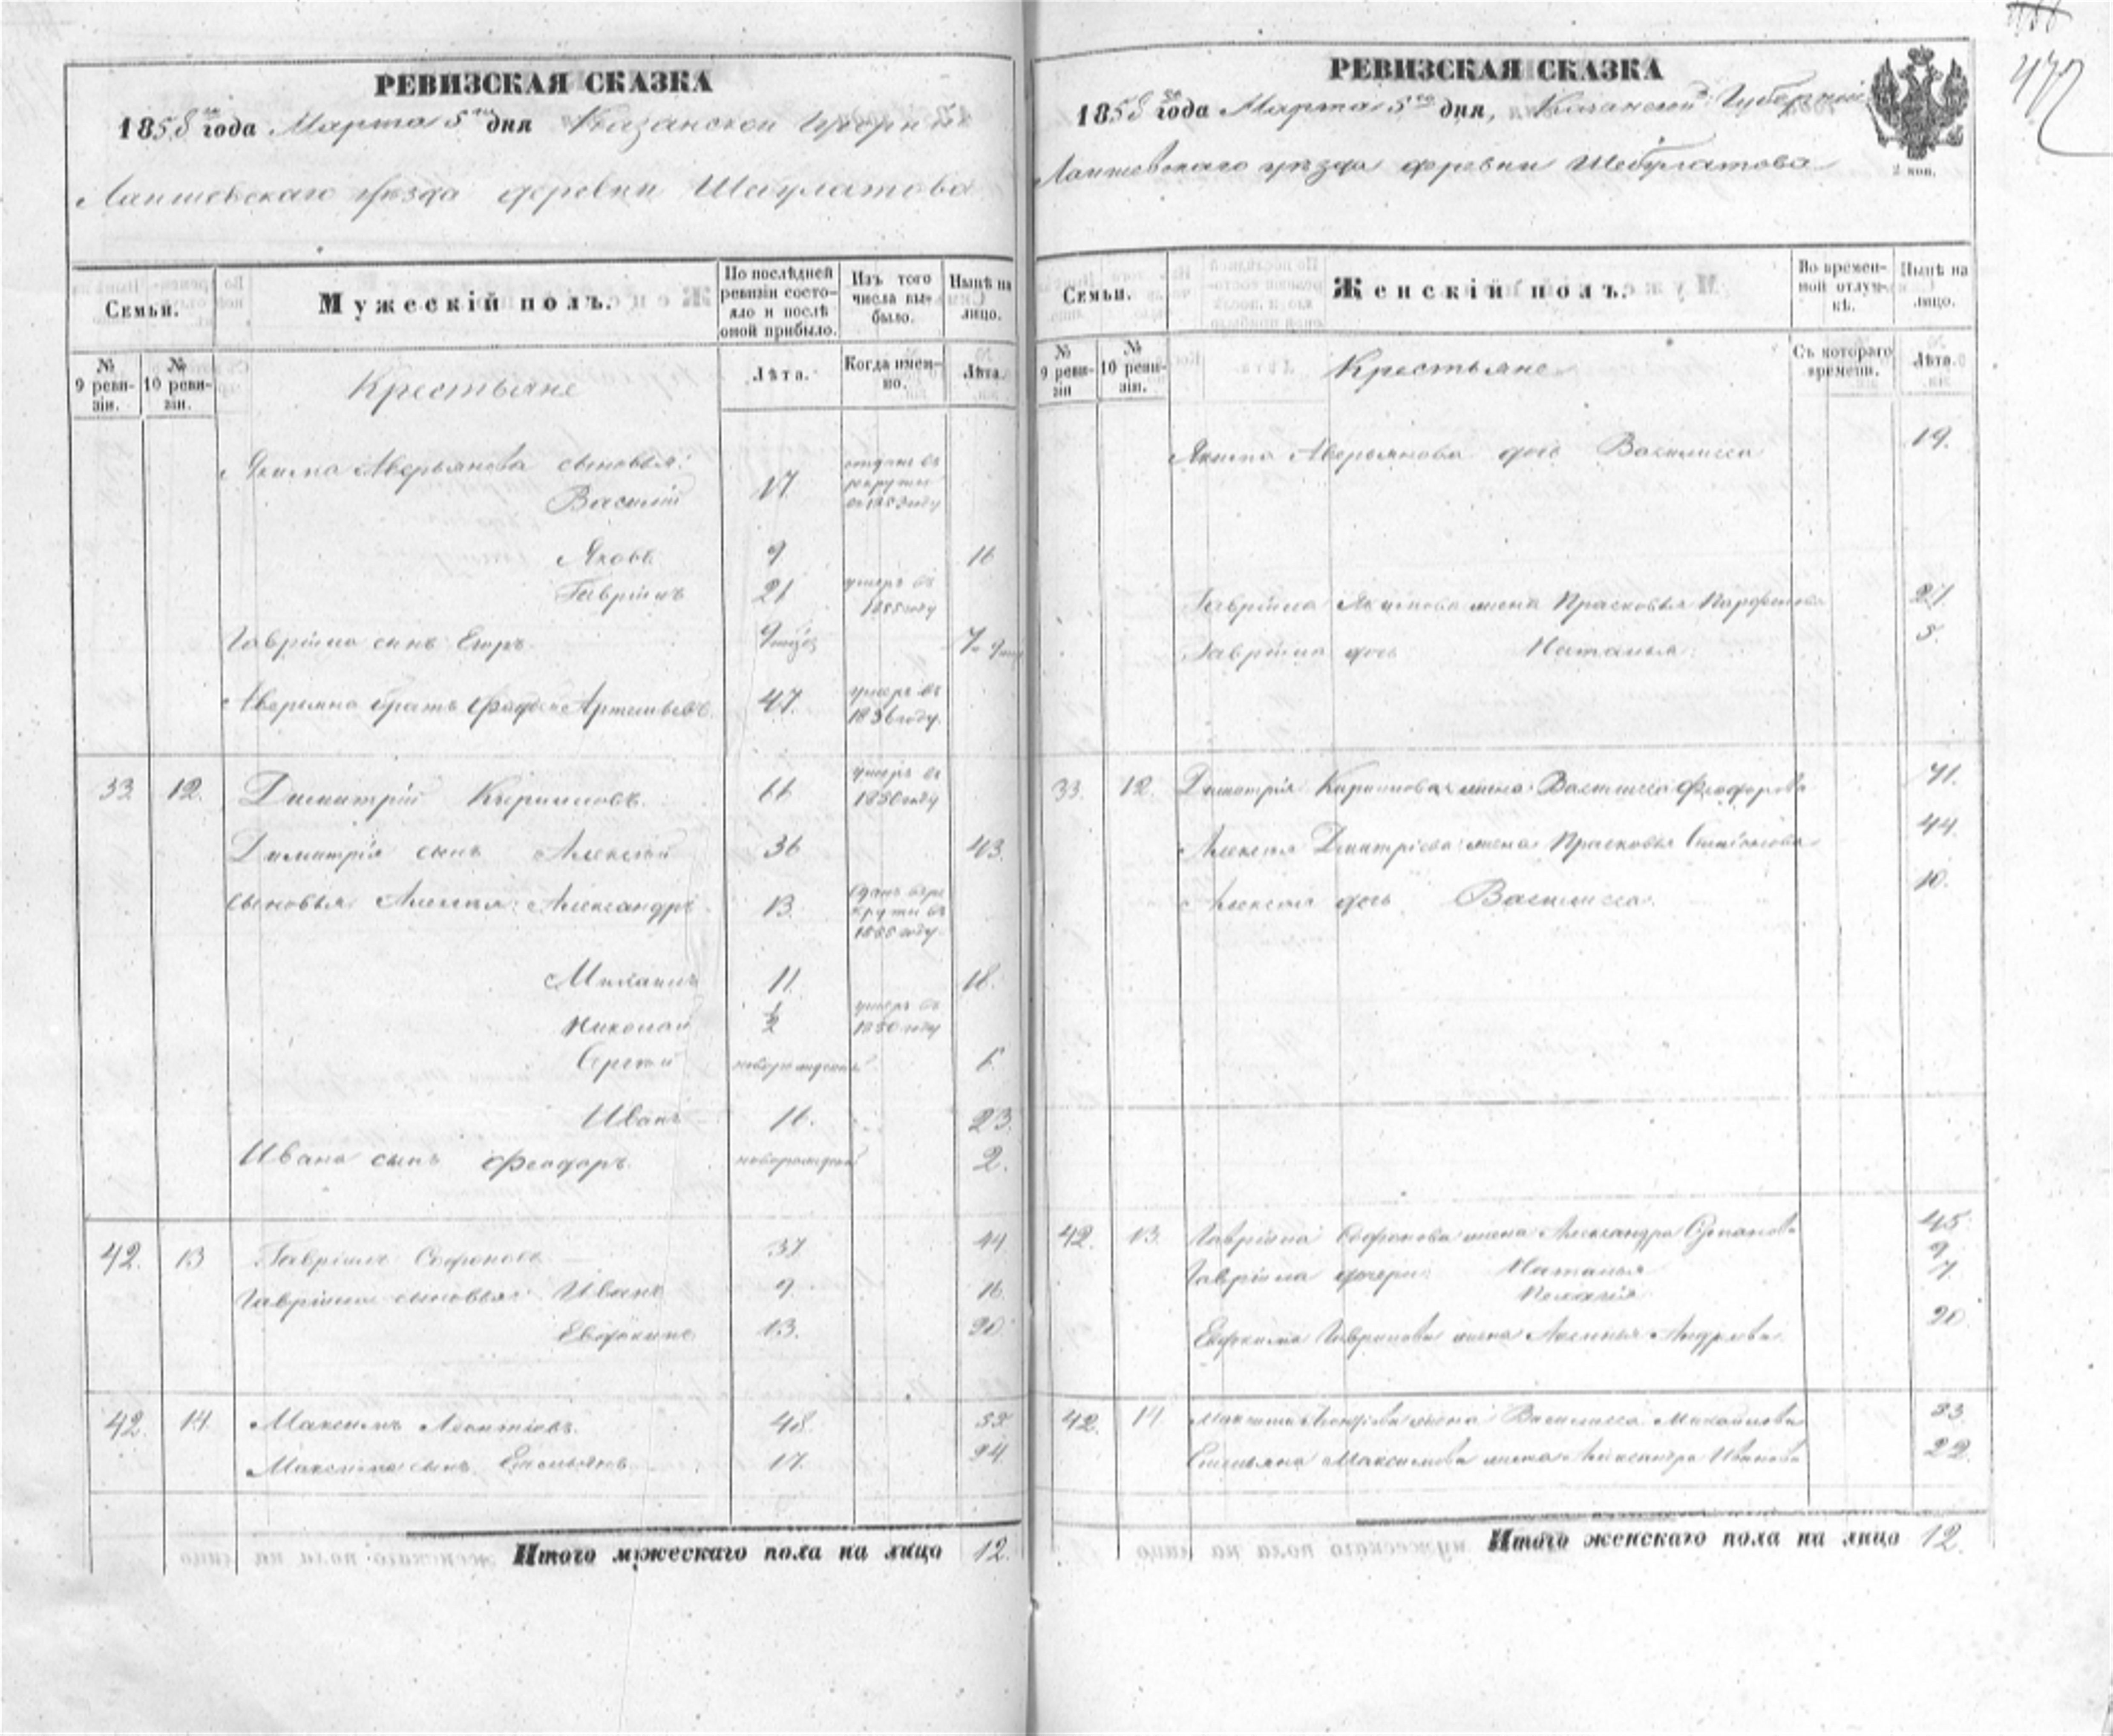 РЕВИЗСКАЯ СКАЗКА
1858 года Марта 5 дня Казанской Губерніи
Лаишевскаго уѣзда деревни Шебулатова
Семьи.
Мужескій полъ.
По послѣдней ревизіи состояло и послѣ оной прибыло.
Изъ того числа выбыло.
Нынѣ на лицо.
№ 9 ревизіи.
№ 10 ревизіи.
Крестьяне
Лѣта.
Когда именно.
Лѣта
Якима Аверьянова сыновья:
Василій 17 отданъ въ рекруты въ 1853 году
Яковъ 9 16
Гавріилъ 21 умеръ въ 1855 году
Гавріила сынъ Егоръ
Аверьяна братъ Артемьевъ 47. умеръ въ 1856 году.
33 12. Димитрій Кириловъ 66 умеръ въ 1850 году
Димитрія сынъ Алексѣй 36 43.
Сыновья Алексѣя: Александръ 13 1855 году.
Михаилъ 11. 18.
Николай 1/2 умеръ въ 1850 году
Сергѣй новорожденный 6
Иванъ 16. 23.
Ивана сынъ Феодоръ новорожденный 2.
42. 13 Гавріилъ Софоновъ 37 44
Гавріила сыновья: Иванъ 9 16.
Евдокимъ 13. 20.
42. 14. Максимъ Леонтьевъ. 48.
Максима сынъ Емельянъ 17. 24
Итого мужескаго пола на лицо 12.
РЕВИЗСКАЯ СКАЗКА
1858 года Марта 5 дня, Казанской Губерніи
Лаишевскаго уѣзда деревни Шебулатова
2 коп.
472
Семьи.
Женскій полъ.
Во временной отлучкѣ.
Нынѣ на лицо.
№ 9 ревизіи
№ 10 ревизіи.
Крестьяне
Съ котораго времени.
Лѣта.
Якима Аверьянова дочь Василисса 19.
Гавріила Якимова жена Прасковья Парфенова 27
Гавріила дочь Наталья
33. 12. Димитрія Кирилова жена Василисса Феодорова 71.
Алексѣя Дмитріева жена Прасковья 44.
Алексѣя дочь Василисса. 10.
42. 13. Гавріила Софонова жена Александра Степанова 45.
Гавріила дочери: Наталья 9
Пелагія 7.
Евдокима Гаврилова жена Аксинья Андреева 20
42. 14. Максима Леонтьева жена Василисса Михайлова
Емельяна Максимова жена Александра Иванова 22.
Итого женскаго пола на лицо 12.